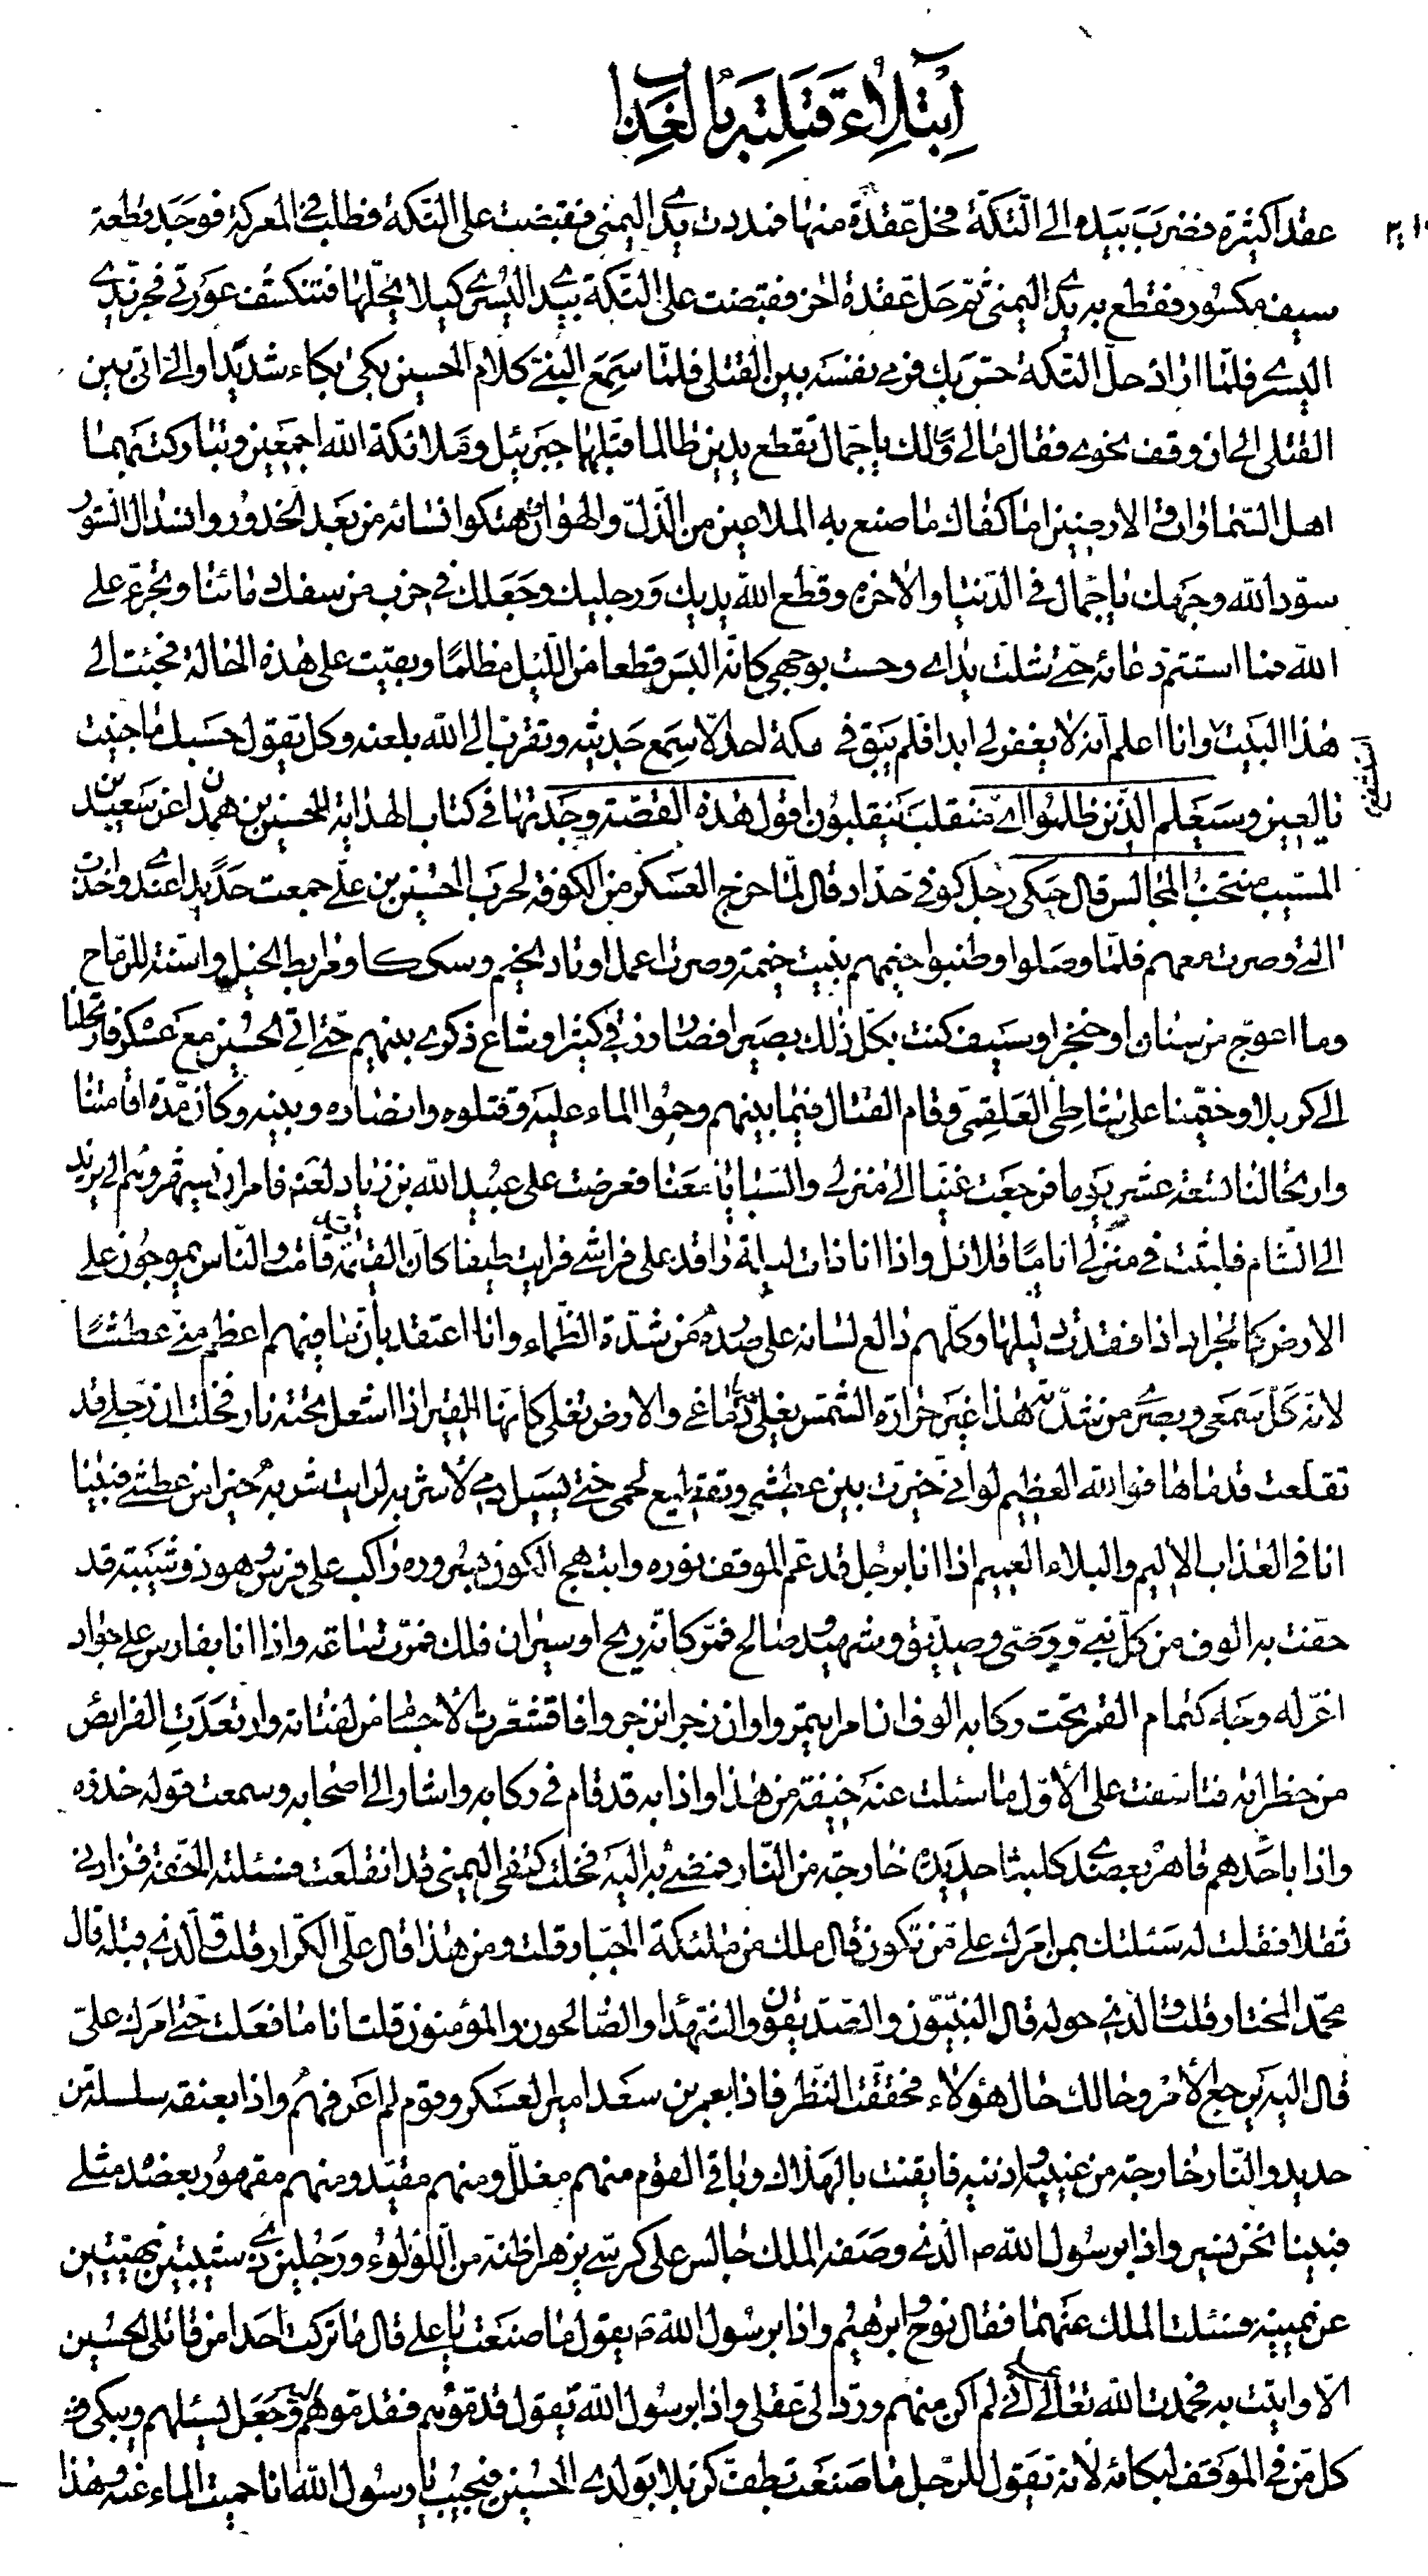 ابتلاء قتلته بالعذاب
عقدا كثيرة فضرب بيده الى التكة فحل عقدة منها فمددت يدي اليمنى فقبضت على التكة فطلب في المعركة فوجد قطعة
سيف مكسور فقطع به يدي اليمنى ثم حل عقدة اخرى فقبضت على التكة بيدي اليسرى كيلا يحلها فتنكشف عورتي فجز يدي
اليسرى فلما اراد حل التكة حس بك فرمى نفسه بين القتلى فلما سمع النبي كلام الحسين بكى بكاء شديدا واتى الي بين
القتلى الى ان وقف نحوي فقال مالي ومالك يا جمال تقطع يدين طالما قبلهما جبرئيل وملائكة الله اجمعين وتباركت بهما
اهل السماوات والارضين اما كفاك ما صنع به الملاعين من الذل والهوان هتكوا نسائه من بعد الخدور وانسدال الستور
سود الله وجهك يا جمال في الدنيا والاخرة وقطع الله يديك ورجليك وجعلك في حزب من سفك دمائنا وتجرء على
الله فما استتم دعائه حتى شلت يداي وحست بوجهي كانه البس قطعا من الليل مظلما وبقيت على هذه الحالة فجئت الى
هذا البيت استشفع وانا اعلم انه لا يغفر لي ابدا فلم يبق في مكة احد الا سمع حديثه وتقرب الى الله بلعنه وكل يقول حسبك ما جنيت
يا لعين وسيعلم الذين ظلموا اي منقلب ينقلبون اقول هذه القصة وجدتها في كتاب الهداية للحسين بن همدان عن سعيد بن
المسيب منتخب المجالس قال حكى رجل كوفي حداد قال لما خرج العسكر من الكوفة لحرب الحسين بن علي جمعت حديدا عندي واخذت
التي وصرت معهم فلما وصلوا وطنبوا خيمهم بنيت خيمة وصرت اعمل اوتاد الخيم وسككا ومرابط الخيل واسنة للرماح
وما اعوج من سنان او خنجر او سيف كنت بكل ذلك بصيرا فصار رزقي كثيرا وشاع ذكري بينهم حتى اتى الحسين مع عسكره فارتحلنا
الى كربلا وخيمنا على شاطئ العلقمي وقام القتال فيما بينهم وحموا الماء عليه وقتلوه وانصاره وبنيه وكان مدة اقامتنا
وارتحالنا تسعة عشر يوما فرجعت غنيا الى منزلي والسبايا معنا فعرضت على عبيد الله بن زياد لعنه فامر ان يشهروهم الى يزيد
الى الشام فلبثت في منزلي اياما قلائل واذا انا ذات ليلة راقد على فراشي فرايت طيفا كان القيمة قامت والناس يموجون على
الارض كالجراد اذا فقدت دليلها وكلهم دالع لسانه على صدره من شدة الظماء وانا اعتقد بان ما فيهم اعظم مني عطشا
لانه كل سمعي وبصري من شدته هذا غير حرارة الشمس يغلي منها دماغي والارض تغلي كانها القير اذا اشعل تحته نار فخلت ان رجلي قد
تقلعت قدماها فوالله العظيم لو اني خيرت بين عطشي وتقطيع لحمي حتى يسيل دمي لاشربه لرايت شربه خيرا من عطشي فبينا
انا في العذاب الاليم والبلاء العميم اذا انا برجل قد عم الموقف نوره وابتهج الكون بسروره راكب على فرس وهو ذو شيبة قد
حفت به الوف من كل نبي ووصي وصديق وشهيد وصالح فمر كانه ريح او سيران فلك فمرت ساعة واذا انا بفارس على جواد
اغر له وجه كتمام القمر تحت ركابه الوف ان امر ايتمروا وان زجر انزجروا فاقشعرت الاجسام من لفتاته وارتعدت الفرايص
من خطراته فتاسفت على الاول ما سئلت عنه خيفة من هذا واذا به قد قام في ركابه واشار الى اصحابه وسمعت قوله خذوه
واذا باحدهم قاهر بعضدي كلبة حديد خارجة من النار فمضى به اليه فخلت كتفي اليمنى قد انقلعت فسئلته الخفة فزادني
ثقلا فقلت له سئلتك بمن امرك علي من تكون قال ملك من ملئكة الجبار قلت ومن هذا قال علي الكرار قلت والذي قبله قال
محمد المختار قلت والذي حوله قال النبيون والصديقون والشهداء والصالحون والمؤمنون قلت انا ما فعلت حتى امرك علي
قال اليه يرجع الامر وحالك حال هؤلاء فحققت النظر فاذا بعمر بن سعد امير العسكر وقوم لم اعرفهم واذا بعنقه سلسلة من
حديد والنار خارجة من عينيه واذنيه فايقنت بالهلاك وباقي القوم منهم مغلل ومنهم مقيد ومنهم مقهور بعضده مثلي
فبينا نحن نسير واذا برسول الله ص الذي وصفه الملك جالس على كرسي يزهر اظنه من اللؤلؤ ورجلين ذي شيبتين بهيتين
عن يمينه فسئلت الملك عنهما فقال نوح وابرهيم واذا برسول الله ص يقول ما صنعت يا علي قال ما تركت احدا من قاتلي الحسين
الا واتيت به فحمدت الله تعالى على اني لم اكن منهم ورد الي عقلي واذا برسول الله يقول قدموهم فقدموهم اليه وجعل يسئلهم ويبكي ص
كل من في الموقف لبكائه لانه يقول للرجل ما صنعت بطف كربلا بولدي الحسين فيجيب يا رسول الله انا حميت الماء عنه وهذا